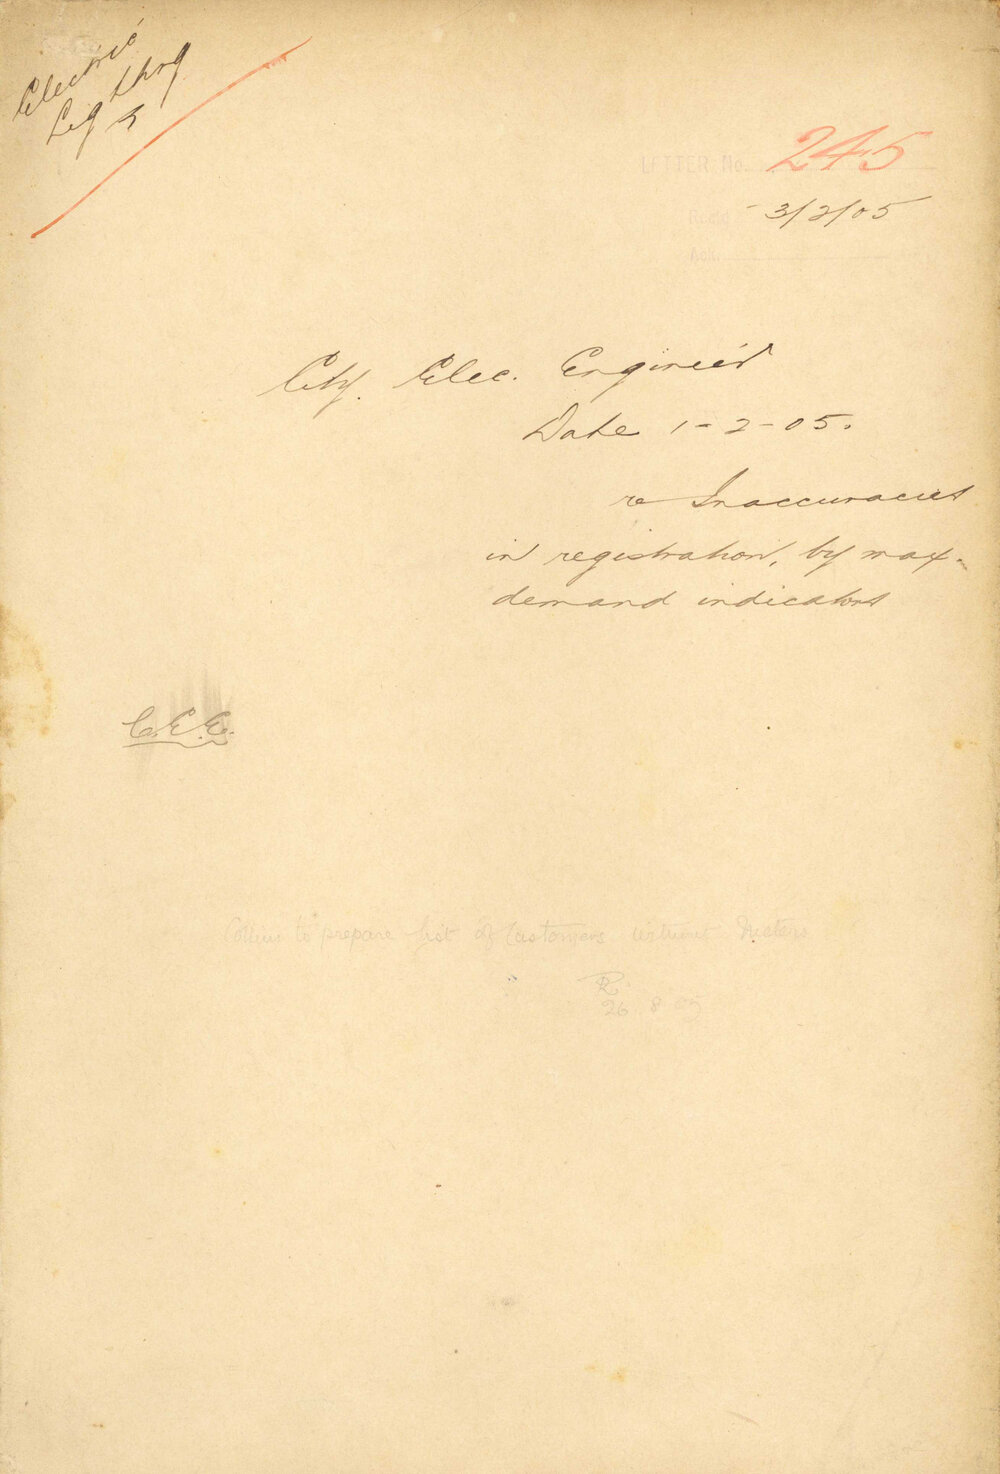 Electric
Lighting
LETTER No. 245
Recd 3/2/05
Ack.
City. Elec. Engineer
Date 1-2-05.
re Inaccuracies
in registration, by max.
demand indicators
C.E.E.
Collins to prepare list of Customers without Meters
R.
26 8 05